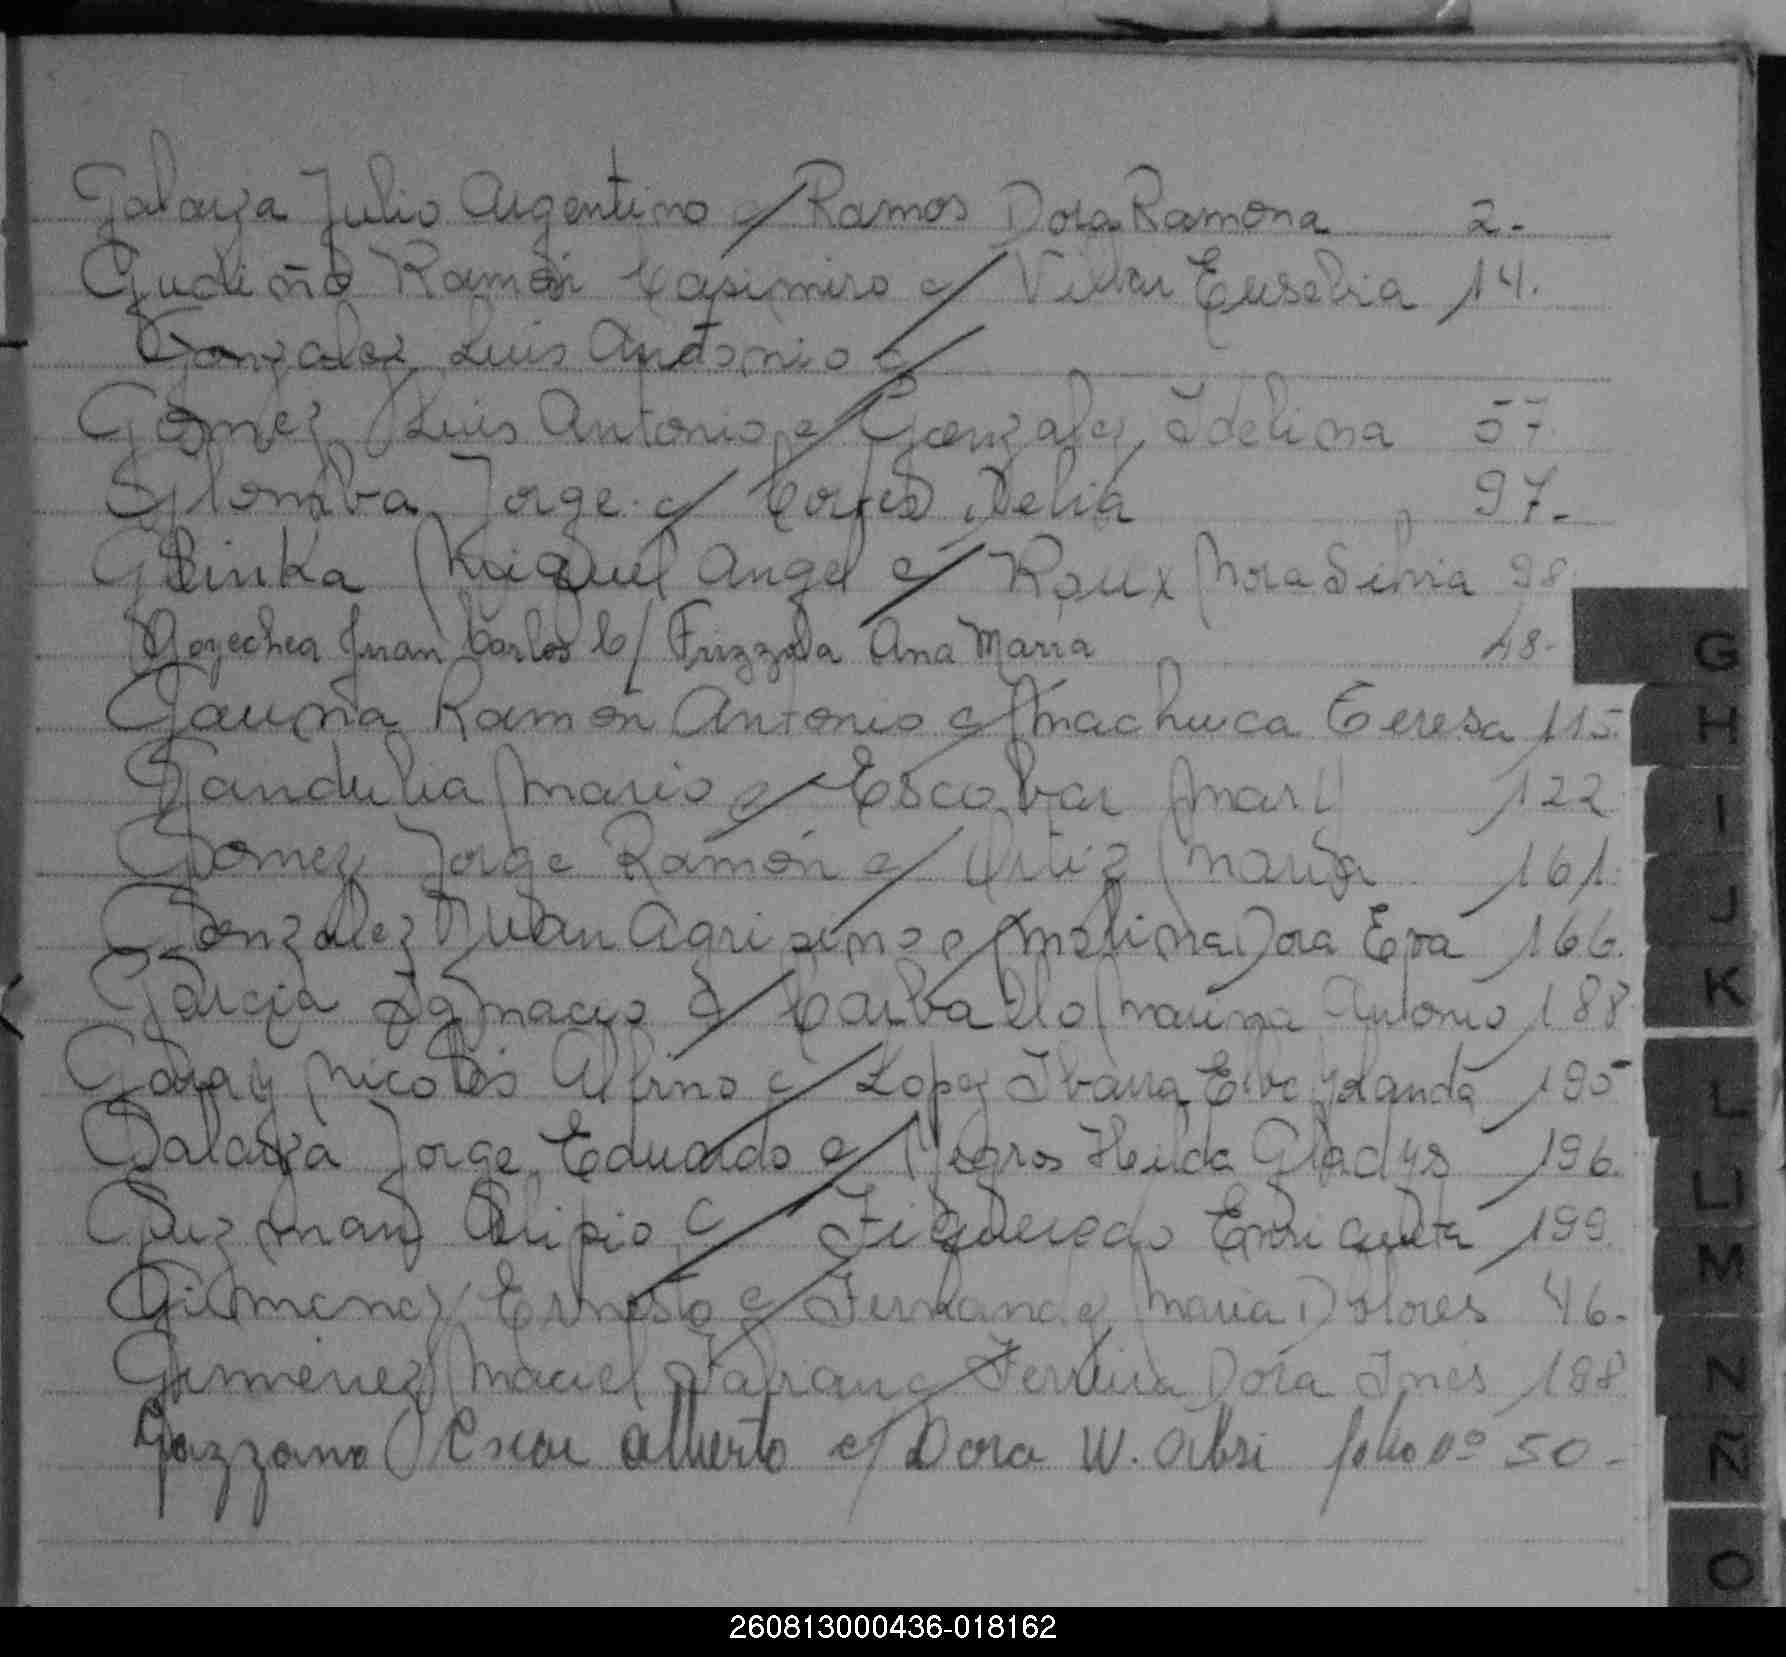 Galarza Julio Argentino c/ Ramos Dora Ramona 2.-
Gudiño Ramón Casimiro c/ Villar Eusebia 14.
Gonzalez Luis Antonio c/
Gomez Luis Antonio c/ Gonzalez Idelina 57.
Glomba Jorge c/ Cortes Delia 97.-
Glinka Miguel Angel c/ Roux Nora Silvia 98.
Goyechea Juan Carlos C/ Frizzola Ana María 48.-
G
Gauna Ramón Antonio c/ Machuca Teresa 115.
H
Gandulia Mario c/ Escobar Mary 122
I
Gomez Jorge Ramón c/ Ortiz María 161.
J
Gonzalez Juan c/ Molina Dora Eva 166.
Garcia Ignacio c/ Carballo Marina Antonio 188
K
Garay Nicolás Albino c/ Lopez Ibarra Elba Yolanda 195
L
Galarza Jorge Eduardo c/ Negros Hilda Gladys 196.
LL
Guzman Alipio c/ Figueredo Enriqueta 199.
M
Gimenez Ernesto c/ Fernandez Maria Dolores 46.-
Gimenez Maciel c/ Ferreira Dora Inés 188.
N
Gazzano Oscar Alberto c/ Dora W. Abri folio nº 50.-
Ñ
O
260813000436-018162